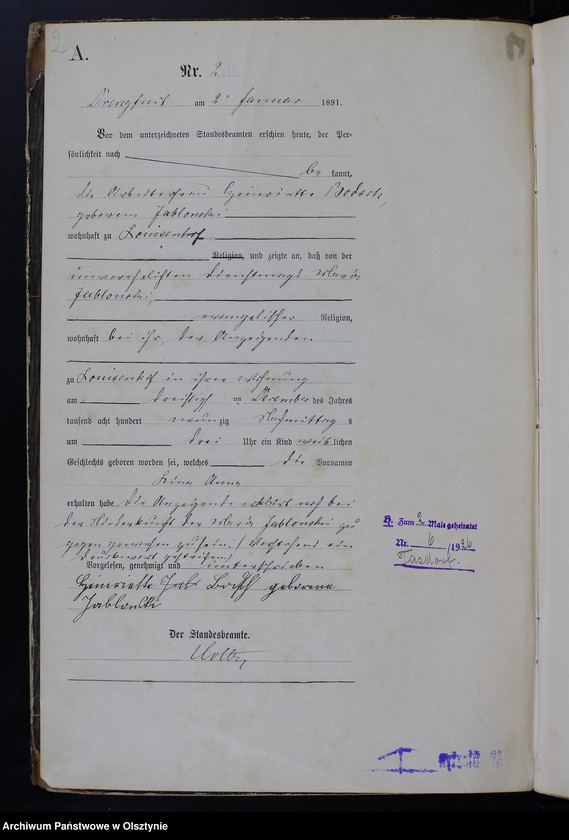 2
A.
Nr. 2
Drengfurt am 2 Januar 1891.
Vor dem unterzeichneten Standesbeamten erschien heute, der Per-
sönlichkeit nach
be kannt,
die Arbeiterfrau Henriette
geborene Jablonski
wohnhaft zu Louisenhof
Religion, und zeigte an, daß von der
unverehelichten Dienstmagd Maria
Jablonski,
evangelischer Religion,
wohnhaft bei ihr, der Anzeigenden
zu Louisenhof in ihrer Wohnung
am dreißigsten Dezember des Jahres
tausend acht hundert neun zig Nachmittag s
um drei Uhr ein Kind weib lichen
Geschlechts geboren worden sei, welches die Vornamen
Anna
erhalten habe Die Anzeigende erklärt noch bei
der Niederkunft der Maria Jablonski zu
gegen gewesen zu sein. (Vorstehend ein
Druckwort gestrichen)
Vorgelesen, genehmigt und unterschrieben
Henriette geborene
Jablonski
Der Standesbeamte.
H. Zum 2 Male geheiratet
Nr. 6 /1926
Archiwum Państwowe w Olsztynie